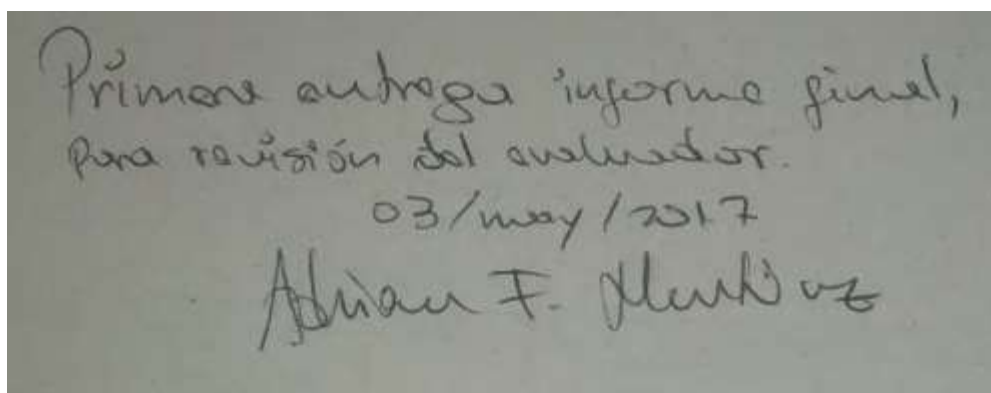 Primera entrega informe final,
para revisión del evaluador.
03/may/2017
Adrian F. Martinez